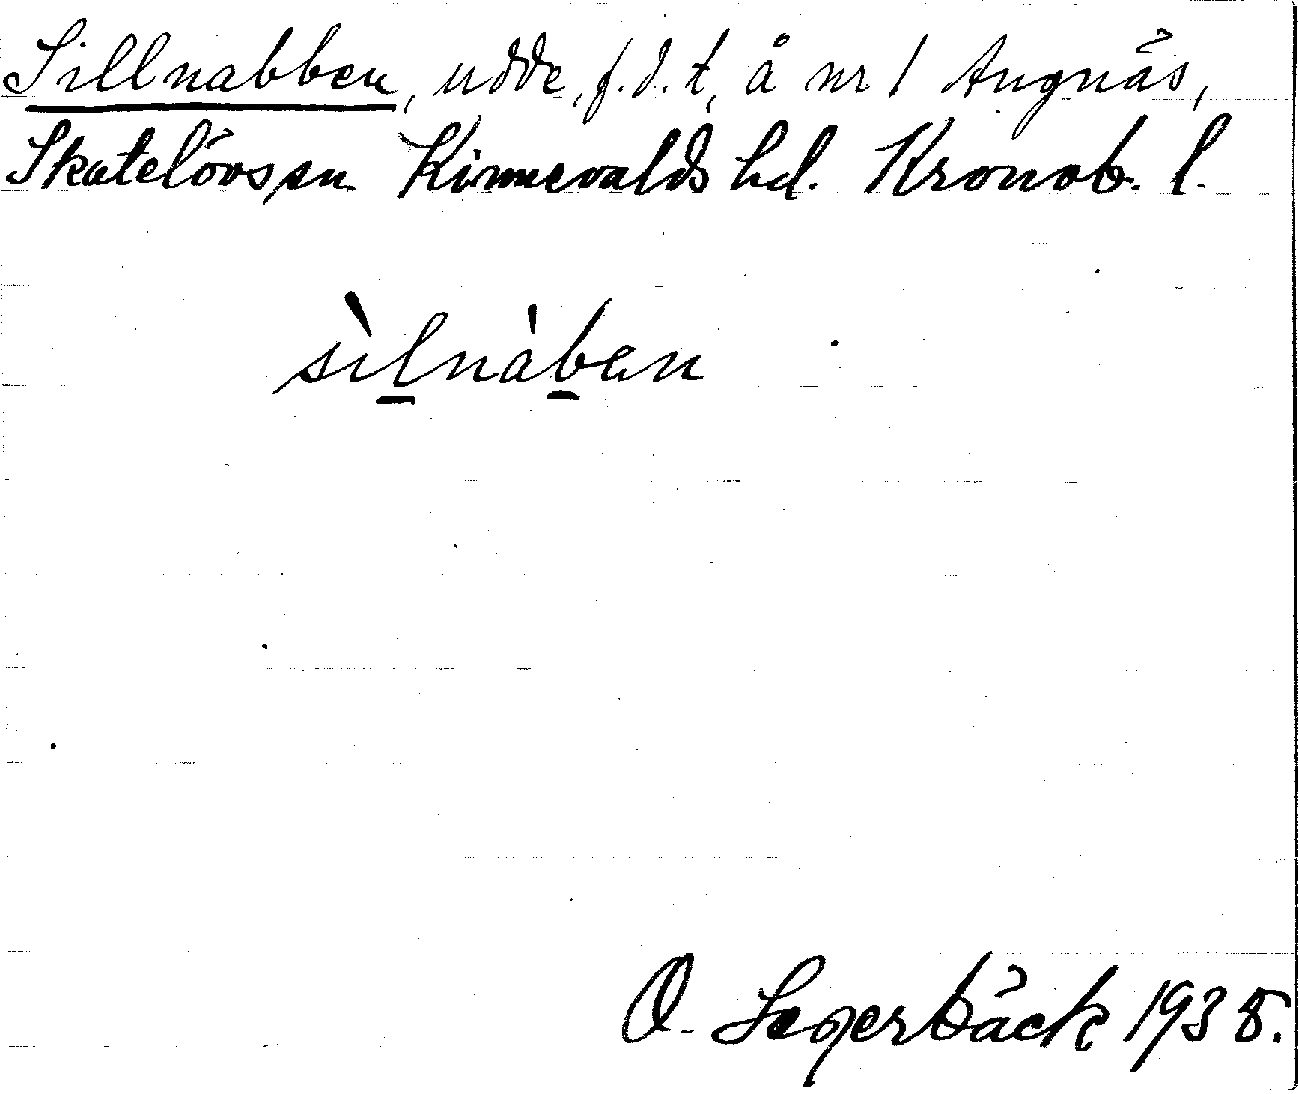 Sillnabben, udde, f.d.t, å nr 1 Angnäs,
Skatelövs sn Kinnevalds hd. Kronob. l.
sìlnàben
O. Lagerbäck 1935.